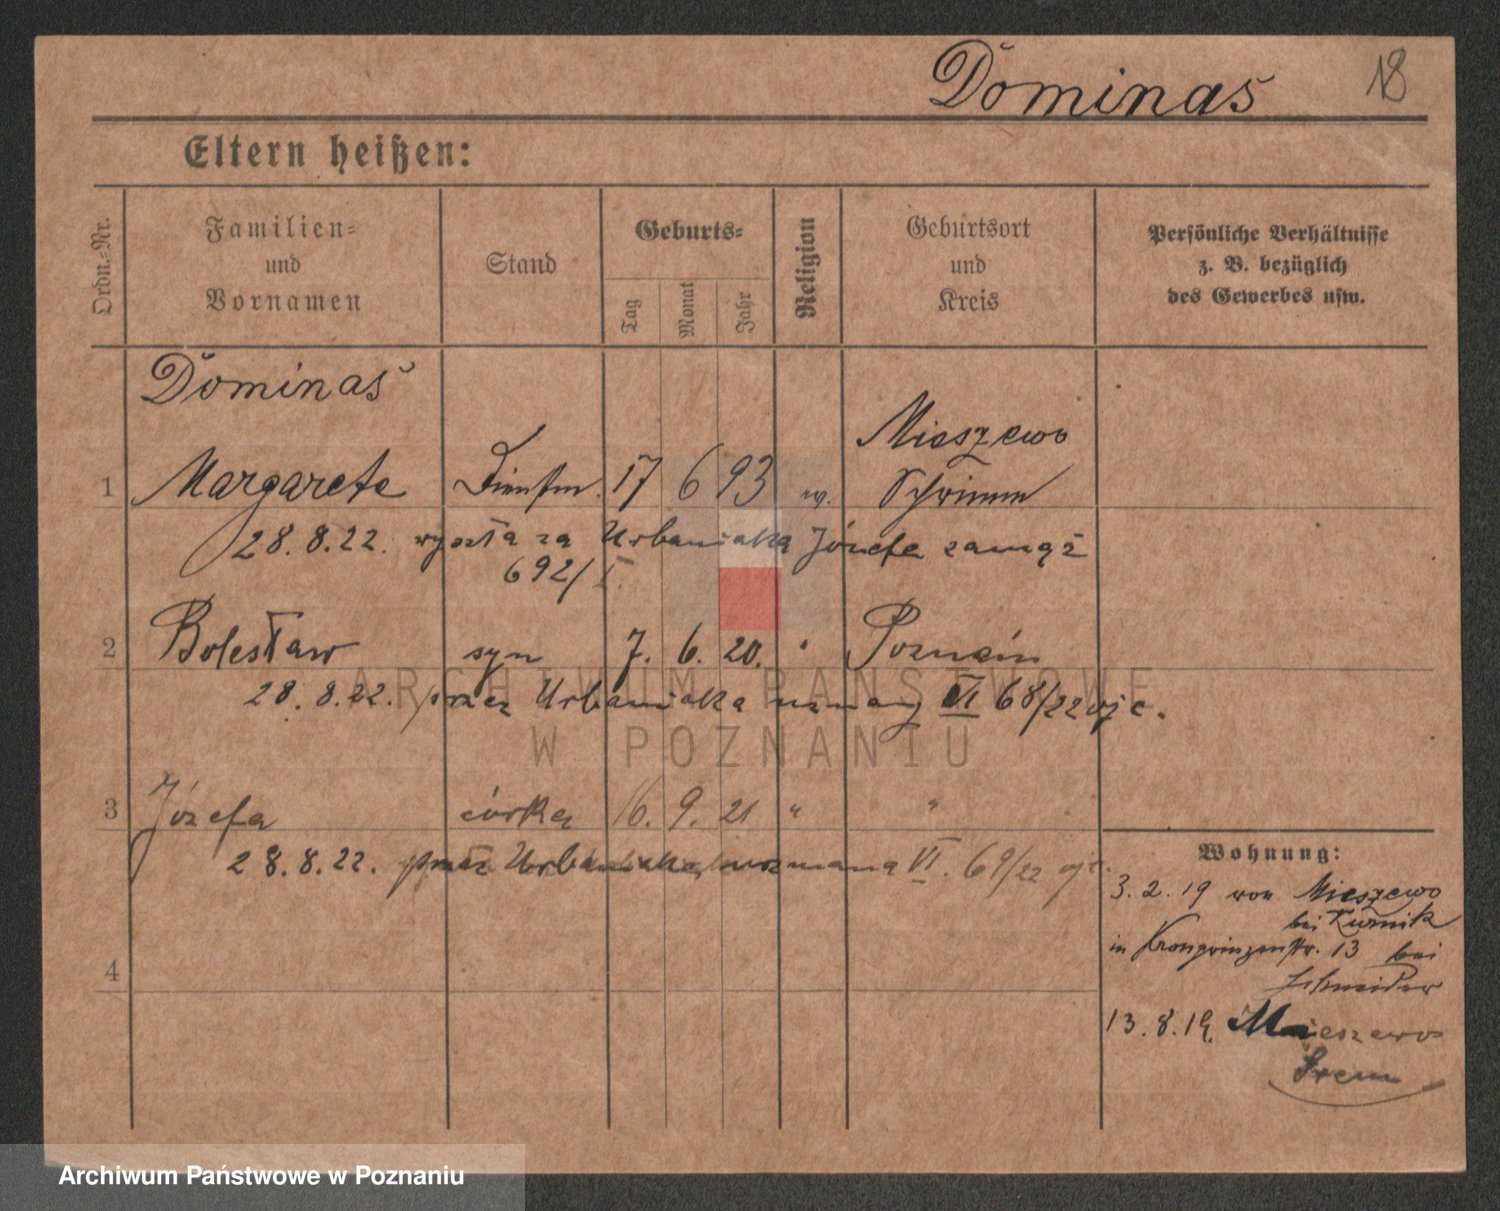 Dominas 18
Eltern heißen:
Ordn.-Nr.
Familien-
und
Vornamen
Stand
Geburts-
Tag
Monat
Jahr
Religion
Geburtsort
und
Kreis
Persönliche Verhältnisse
z. B. bezüglich
des Gewerbes usw.
Dominas
1 Margarete Dienstm. 17 6 93 w. Mieszewo
Schrimm
28.8.22. wyszła za Urbaniaka Józefa zamąż
692/I
2 Bolesław syn 7. 6. 20. " Poznań
28.8.22. przez Urbaniaka uznany VI 68/22
3 Józefa córka 16. 9. 21 " "
28.8.22. przez Urbaniaka uznana VI. 69/22
4
Wohnung:
3.2.19 von Mieszewo
bei Kurnik
in Kronprinzenstr. 13 bei
Schneider
13.8.19. Mieszewo
Śrem
ARCHIWUM PAŃSTWOWE
W POZNANIU
Archiwum Państwowe w Poznaniu